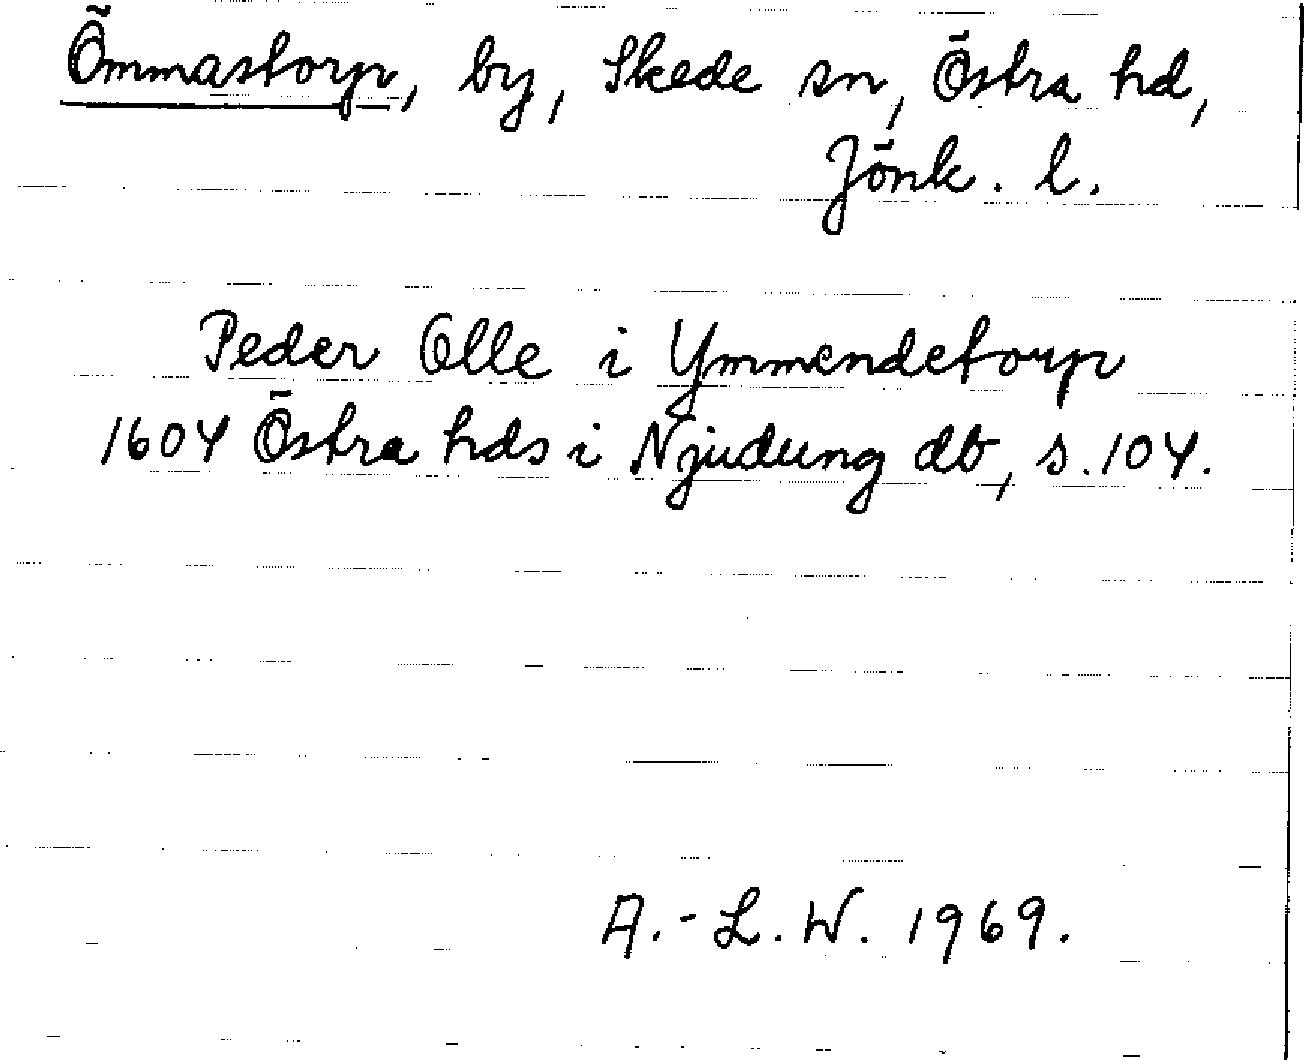 Ömmastorp, by, Skede sn, Östra hd,
Jönk. l.
Peder Olle i Ymmendetorp
1604 Östra hds i Njudung db, s. 104.
A.-L. W. 1969.